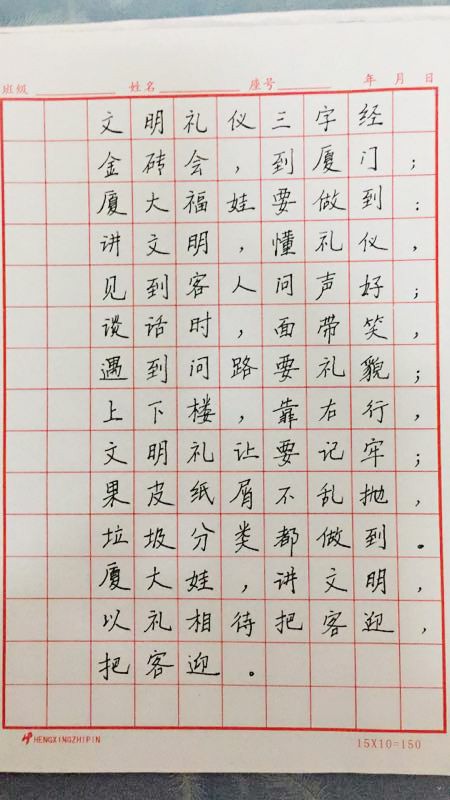 班级 姓名 座号 年 月 日
文明礼仪三字经
金砖会，到厦门；
厦大福娃要做到：
讲文明，懂礼仪，
见到客人问声好；
谈话时，面带笑，
遇到问路要礼貌；
上下楼，靠右行，
文明礼让要记牢；
果皮纸屑不乱抛，
垃圾分类都做到。
厦大娃，讲文明，
以礼相待把客迎，
把客迎。
HENGXINGZHIPIN 15X10=150